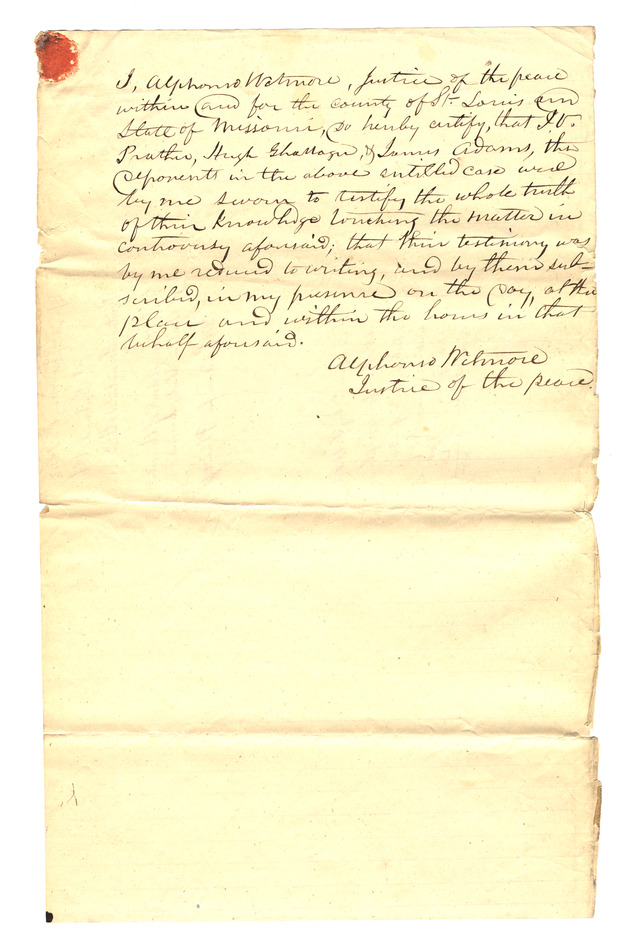 I, Alphonso Wetmore, Justice of the peace
within and for the county of St. Louis and
State of Missouri, do hereby certify, that I. V.
Prather, Hugh & James Adams, the
deponents in the above entitled case were
by me sworn to testify the whole truth
of their knowledge touching the matter in
controversy aforesaid; that their testimony was
by me reduced to writing, and by them sub-
scribed, in my presence on the day, at the
place and within the hours in that
behalf aforesaid.
Alphonso Wetmore
Justice of the peace.